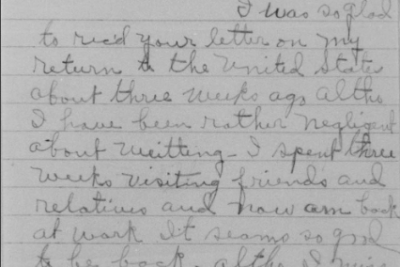 I was so glad
to rec'd your letter on my
return to the United States
about three weeks ago altho
I have been rather negligent
about writting - I spent three
weeks visiting friends and
relatives and now am back
at work It seams so good
to be back, altho I